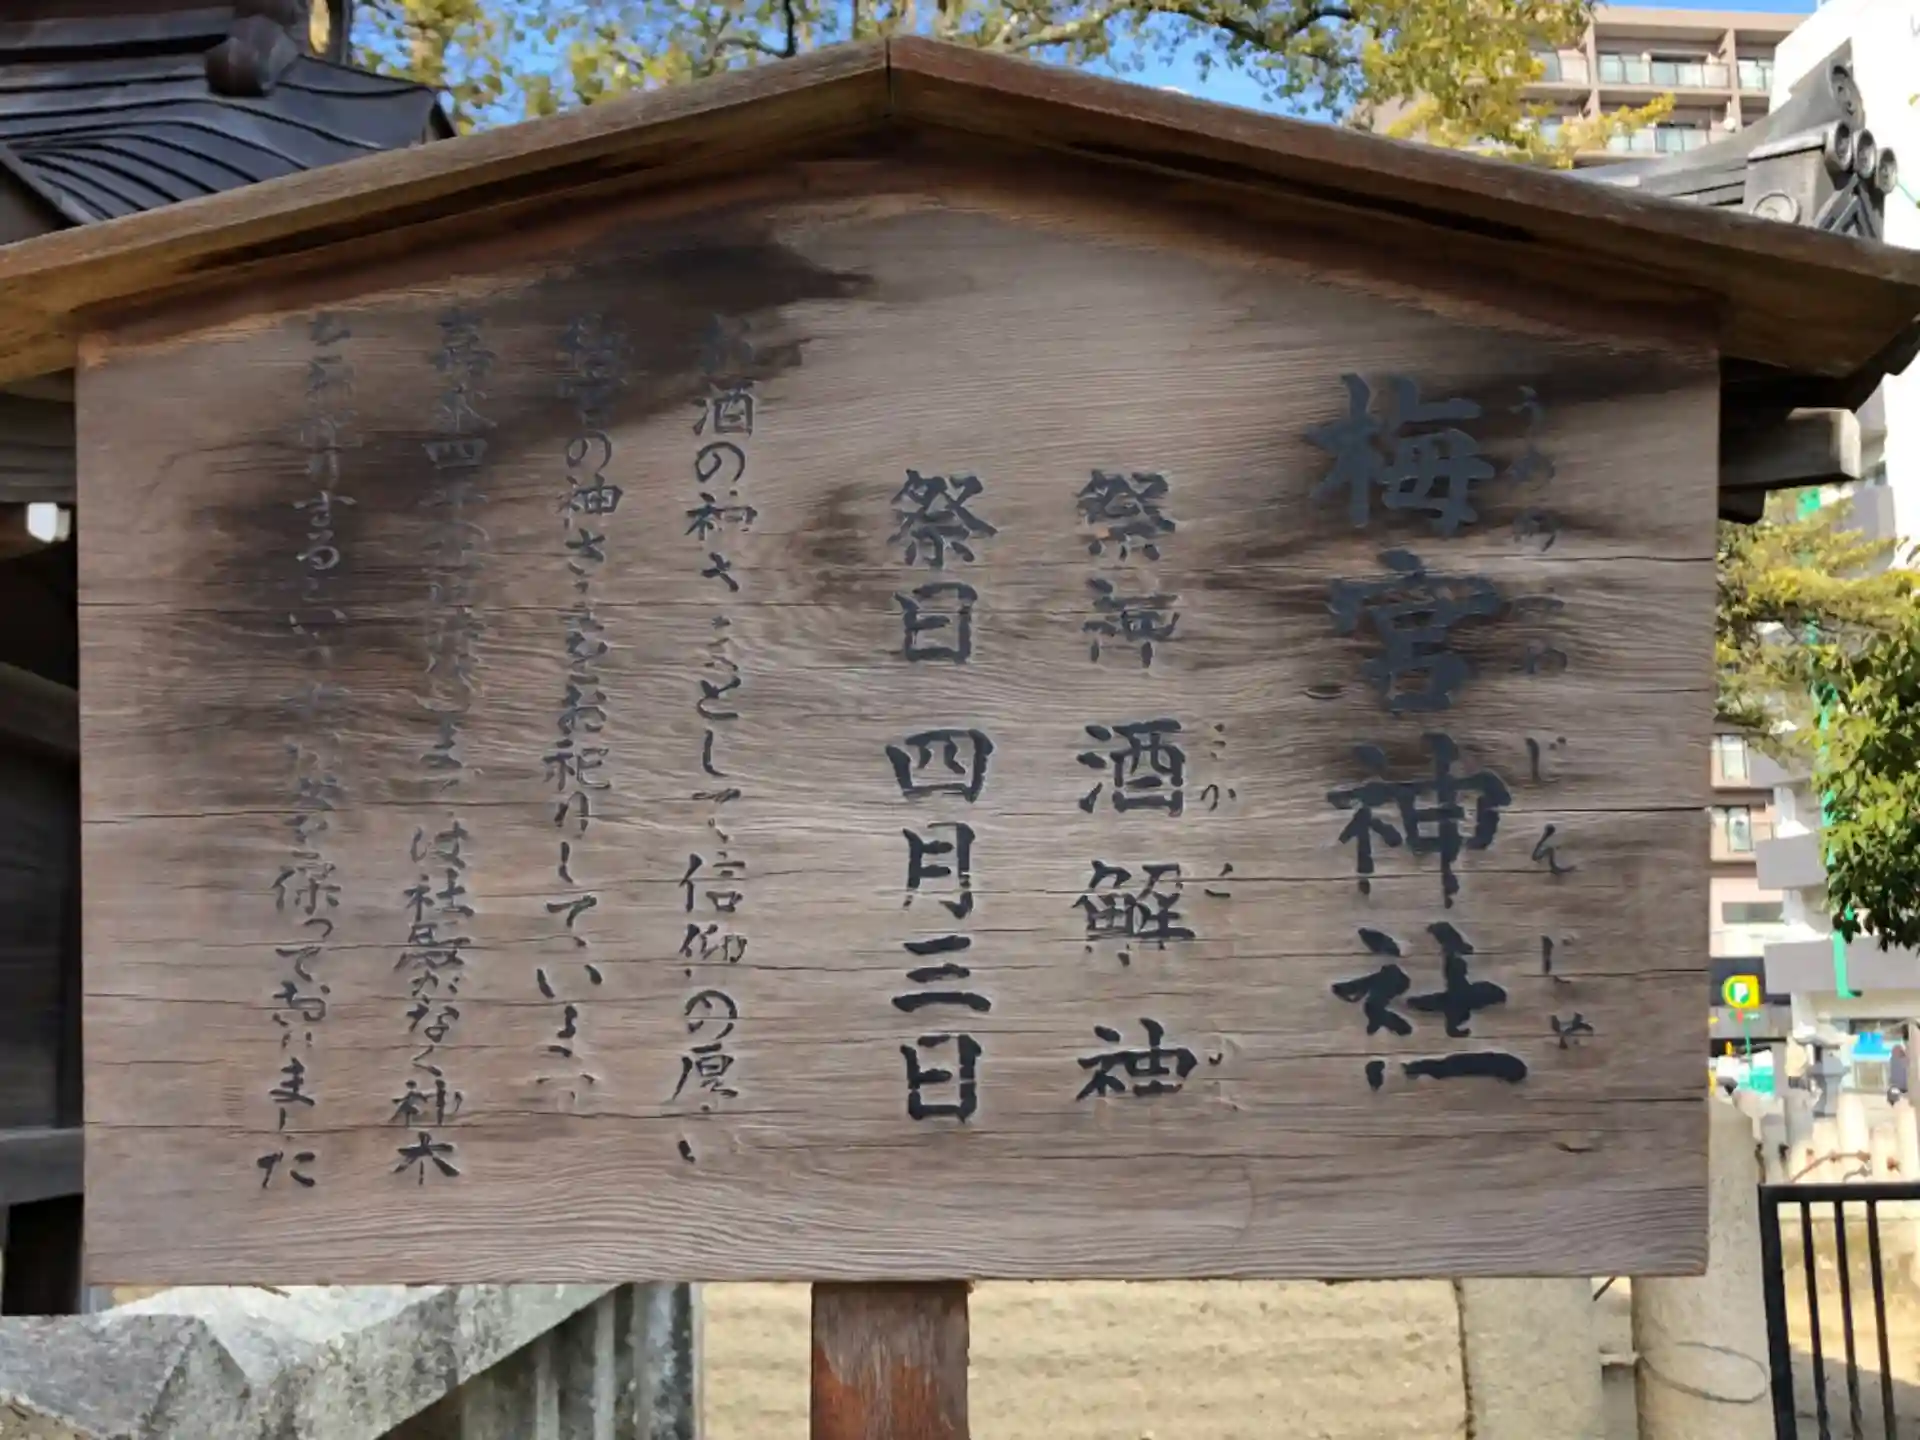 梅宮神社
うめのみやじんじゃ
祭神 酒解神
さかとけ
祭日 四月三日
お酒の神さまとして信仰の厚い
梅宮の神さまをお祀りしています
嘉永四年の は社殿がなく神木
を する 保っておりました